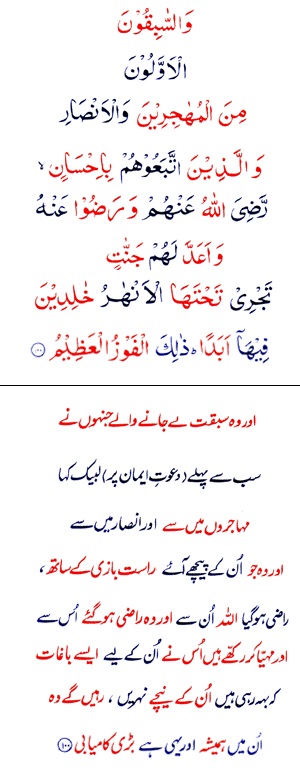 وَالسّٰبِقُوْنَ
الْاَوَّلُوْنَ
مِنَ الْمُهٰجِرِيْنَ وَالْاَنْصَارِ
وَالَّذِيْنَ اتَّبَعُوْهُمْ بِاِحْسَانٍ ۙ
رَّضِيَ اللّٰهُ عَنْهُمْ وَرَضُوْا عَنْهُ
وَاَعَدَّ لَهُمْ جَنّٰتٍ
تَجْرِيْ تَحْتَهَا الْاَنْهٰرُ خٰلِدِيْنَ
فِيْهَآ اَبَدًا ؕ ذٰلِكَ الْفَوْزُ الْعَظِيْمُ ۝۱۰۰
اور وہ سبقت لے جانے والے جنہوں نے
سب سے پہلے (دعوتِ ایمان پر) لبیک کہا
مہاجروں میں سے اور انصار میں سے
اور وہ جو اُن کے پیچھے آئے راست بازی کے ساتھ ،
راضی ہوگیا اللہ اُن سے اور وہ راضی ہو گئے اُس سے
اور مہیّا کر رکھے ہیں اُس نے اُن کے لیے ایسے باغات
کہ بہہ رہی ہیں اُن کے نیچے نہریں ، رہیں گے وہ
اُن میں ہمیشہ اور یہی ہے بڑی کامیابی ۝۱۰۰